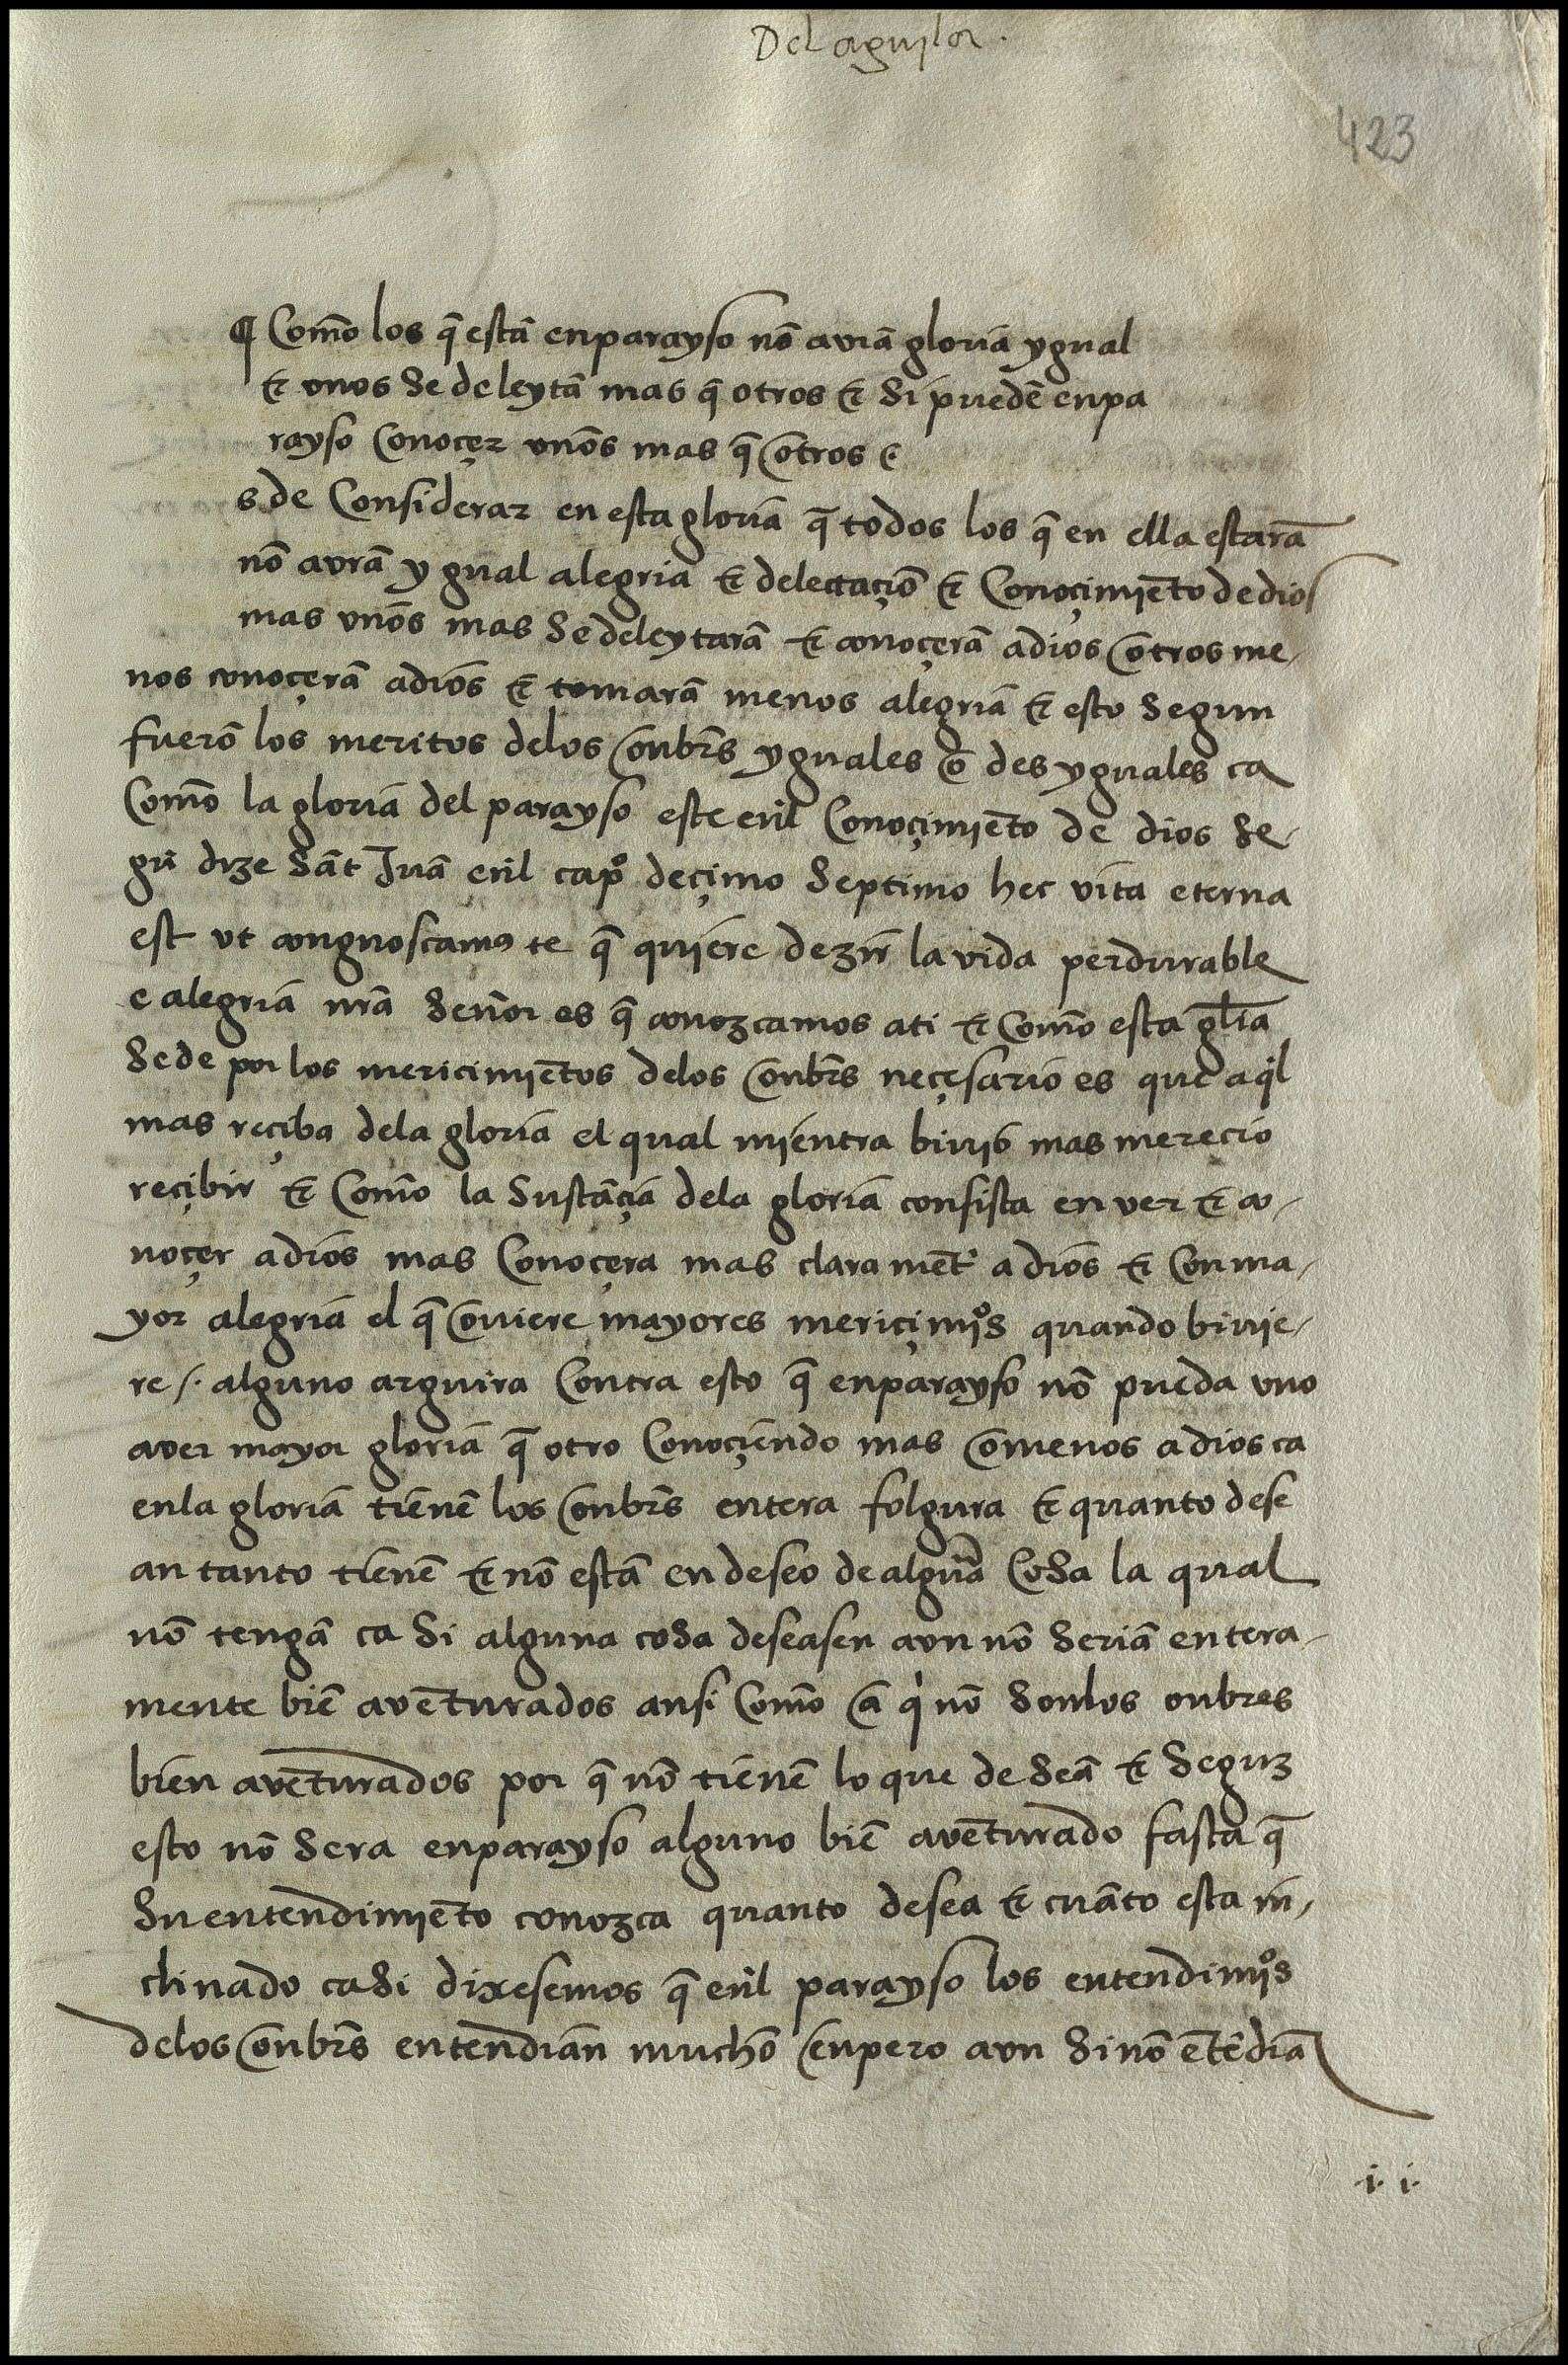 Del aguila.
423
¶ Como los q̃ estã enparayso nõ avrã gloria ygual
⁊ vnos se deleytã mas q̃ otros ⁊ si puedẽ enpa
rayso conoçer vnos mas q̃ otros ⁊
s de considerar en esta gloria q̃ todos los q̃ en ella estarã
nõ avrã ygual alegria ⁊ delectaçiõ ⁊ conoçimiẽto de dios
mas vnos mas se deleytarã ⁊ conoçerã adios otros me-
nos conoçerã adios ⁊ tomarã menos alegria ⁊ esto segun
fuerõ los meritos delos onbrs̃ yguales o des yguales ca
como la gloria del parayso este enl̃ conoçimiẽto de dios se-
gũ dize sãt Juã enl̃ capº deçimo septimo hec vita eterna
est vt congnoscamus te q̃ quiere dezir la vida perdurable
e alegria nr̃a señor es q̃ conozcamos ati ⁊ como esta gl̃ia
sede por los mericimiẽtos delos onbrs̃ neçesario es que aq̃l
mas reçiba dela gloria el qual mientra biuio mas mereçio
reçibir ⁊ como la sustãçia dela gloria consista en ver ⁊ co-
noçer adios mas conoçera mas clara mẽt adios ⁊ con ma-
yor alegria el q̃ ouiere mayores meriçimiºs quando biuie-
re /. alguno arguira contra esto q̃ enparayso nõ pueda vno
aver mayor gloria q̃ otro conoçiendo mas o menos adios ca
enla gloria tienẽ los onbrs̃ entera folgura ⁊ quanto dese
an tanto tienẽ ⁊ nõ estã en deseo de algũa cosa la qual
nõ tengã ca si alguna cosa deseasen avn nõ seriã entera-
mente biẽ avẽturados ansi como a qi nõ sonlos onbres
bien avẽturados por q̃ nõ tienẽ lo que deseã ⁊ segun
esto nõ sera enparayso alguno biẽ avẽturado fasta q̃
su entendimiẽto conozca quanto desea ⁊ cuãto esta in-
clinado ca si dixesemos q̃ enl̃ parayso los entendimiºs
delos onbrs̃ entendian mucho enpero avn si nõ entẽdiã
.i. i.